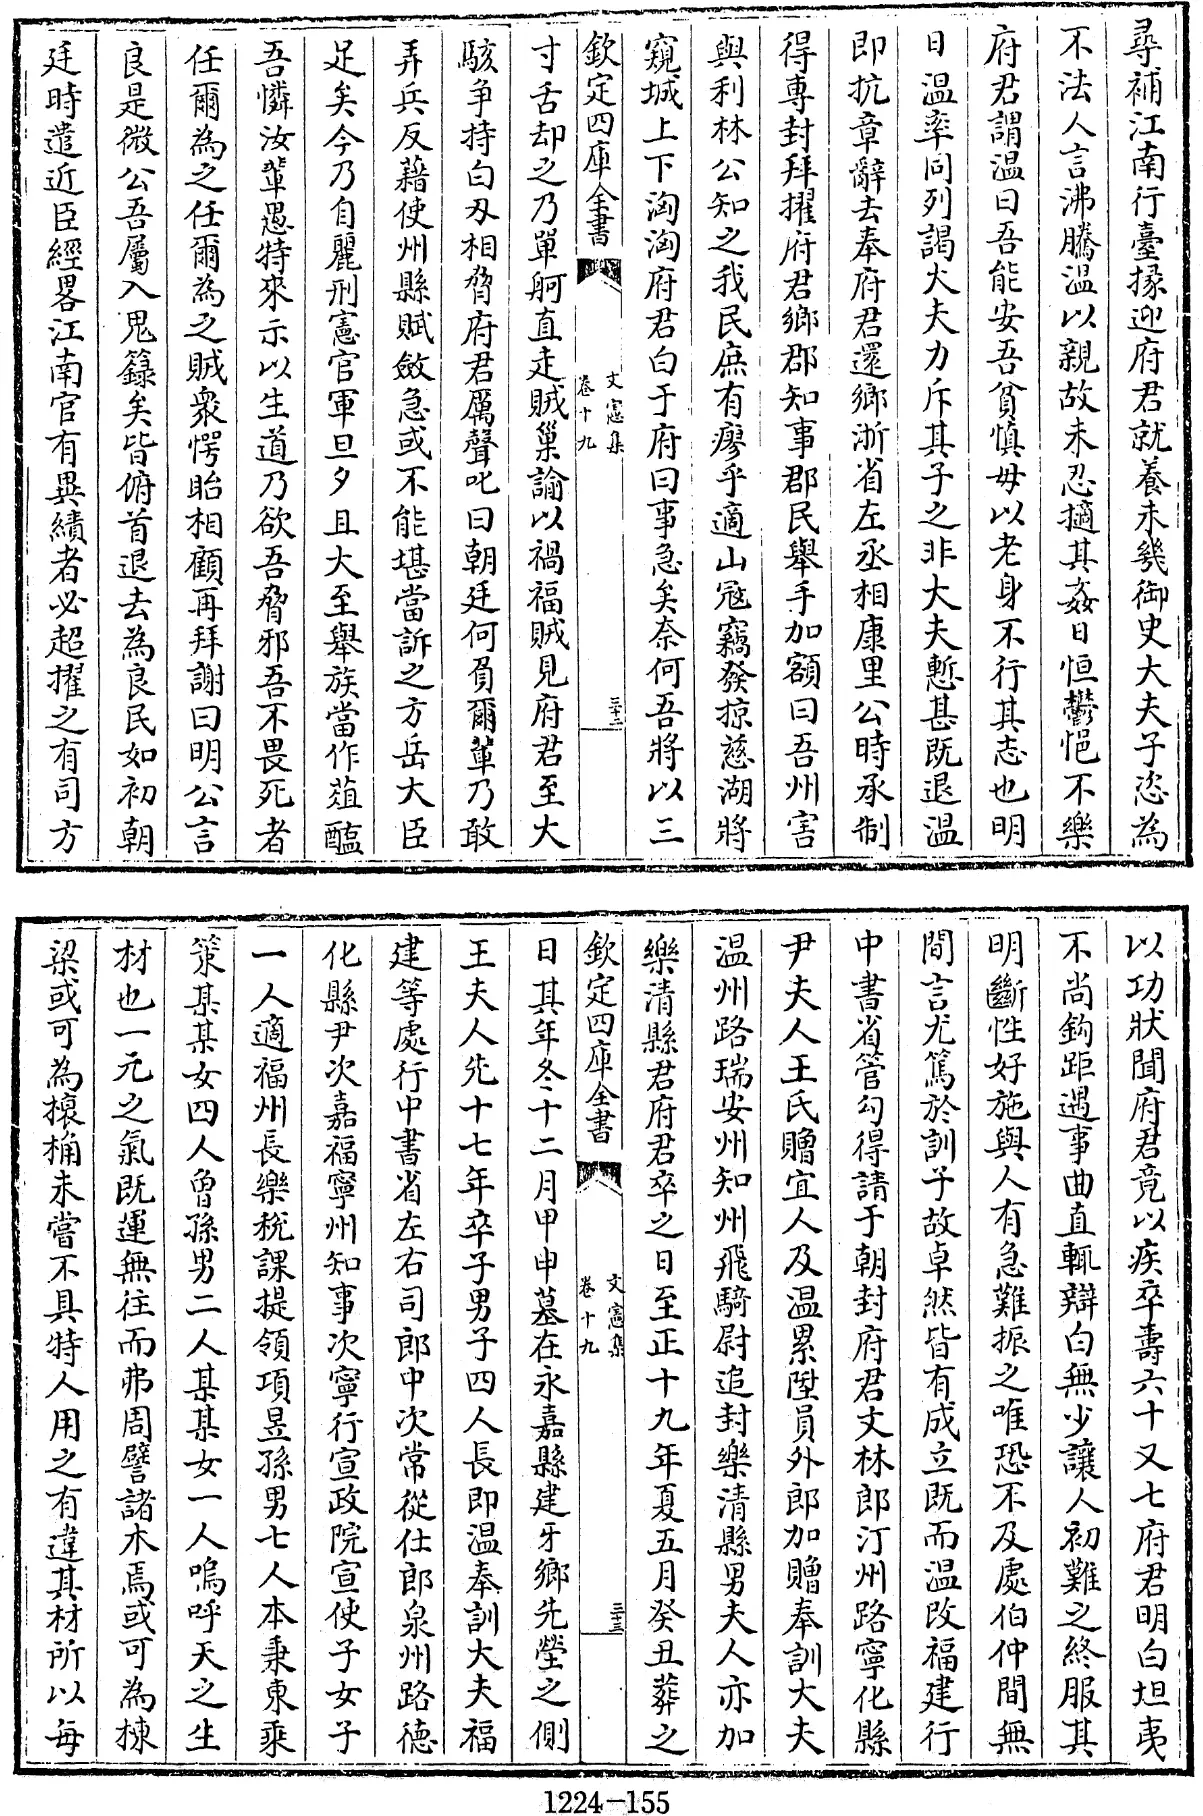 尋補江南行臺掾迎府君就養未幾御史大夫子恣為
不法人言沸騰溫以親故未忍擿其姦日恒鬱悒不樂
府君謂溫曰吾能安吾貧慎毋以老身不行其志也明
日溫率同列謁大夫力斥其子之非大夫慙甚既退溫
即抗章辭去奉府君還鄉浙省左丞相康里公時承制
得專封拜擢府君鄉郡知事郡民舉手加額曰吾州害
與利林公知之我民庶有瘳乎適山寇竊發掠慈湖將
窺城上下洶洶府君白于府曰事急矣奈何吾將以三
欽定四庫全書
文憲集
卷十九
三十二
寸舌却之乃單舸直走賊巢諭以禍福賊見府君至大
駭爭持白刃相脅府君厲聲叱曰朝廷何負爾軰乃敢
弄兵反藉使州縣賦斂急或不能堪當訴之方岳大臣
足矣今乃自麗刑憲官軍旦夕且大至舉族當作葅醢
吾憐汝軰愚特來示以生道乃欲吾脅邪吾不畏死者
任爾為之任爾為之賊衆愕眙相顧再拜謝曰明公言
良是微公吾屬入鬼籙矣皆俯首退去為良民如初朝
廷時遣近臣經畧江南官有異績者必超擢之有司方
以功狀聞府君竟以疾卒壽六十又七府君明白坦夷
不尚鈎距遇事曲直輒辯白無少讓人初難之終服其
明斷性好施與人有急難振之唯恐不及處伯仲間無
間言尤篤於訓子故卓然皆有成立既而溫改福建行
中書省管勾得請于朝封府君文林郎汀州路寧化縣
尹夫人王氏贈宜人及溫累陞員外郎加贈奉訓大夫
溫州路瑞安州知州飛騎尉追封樂清縣男夫人亦加
樂清縣君府君卒之日至正十九年夏五月癸丑葬之
欽定四庫全書
文憲集
卷十九
三十三
日其年冬十二月甲申墓在永嘉縣建牙鄉先塋之側
王夫人先十七年卒子男子四人長即溫奉訓大夫福
建等處行中書省左右司郎中次常從仕郎泉州路德
化縣尹次嘉福寧州知事次寧行宣政院宣使子女子
一人適福州長樂稅課提領項昱孫男七人本秉東乘
策某某女四人曾孫男二人某某女一人嗚呼天之生
材也一元之氣既運無往而弗周譬諸木焉或可為棟
梁或可為榱桷未嘗不具特人用之有違其材所以每
1224-155